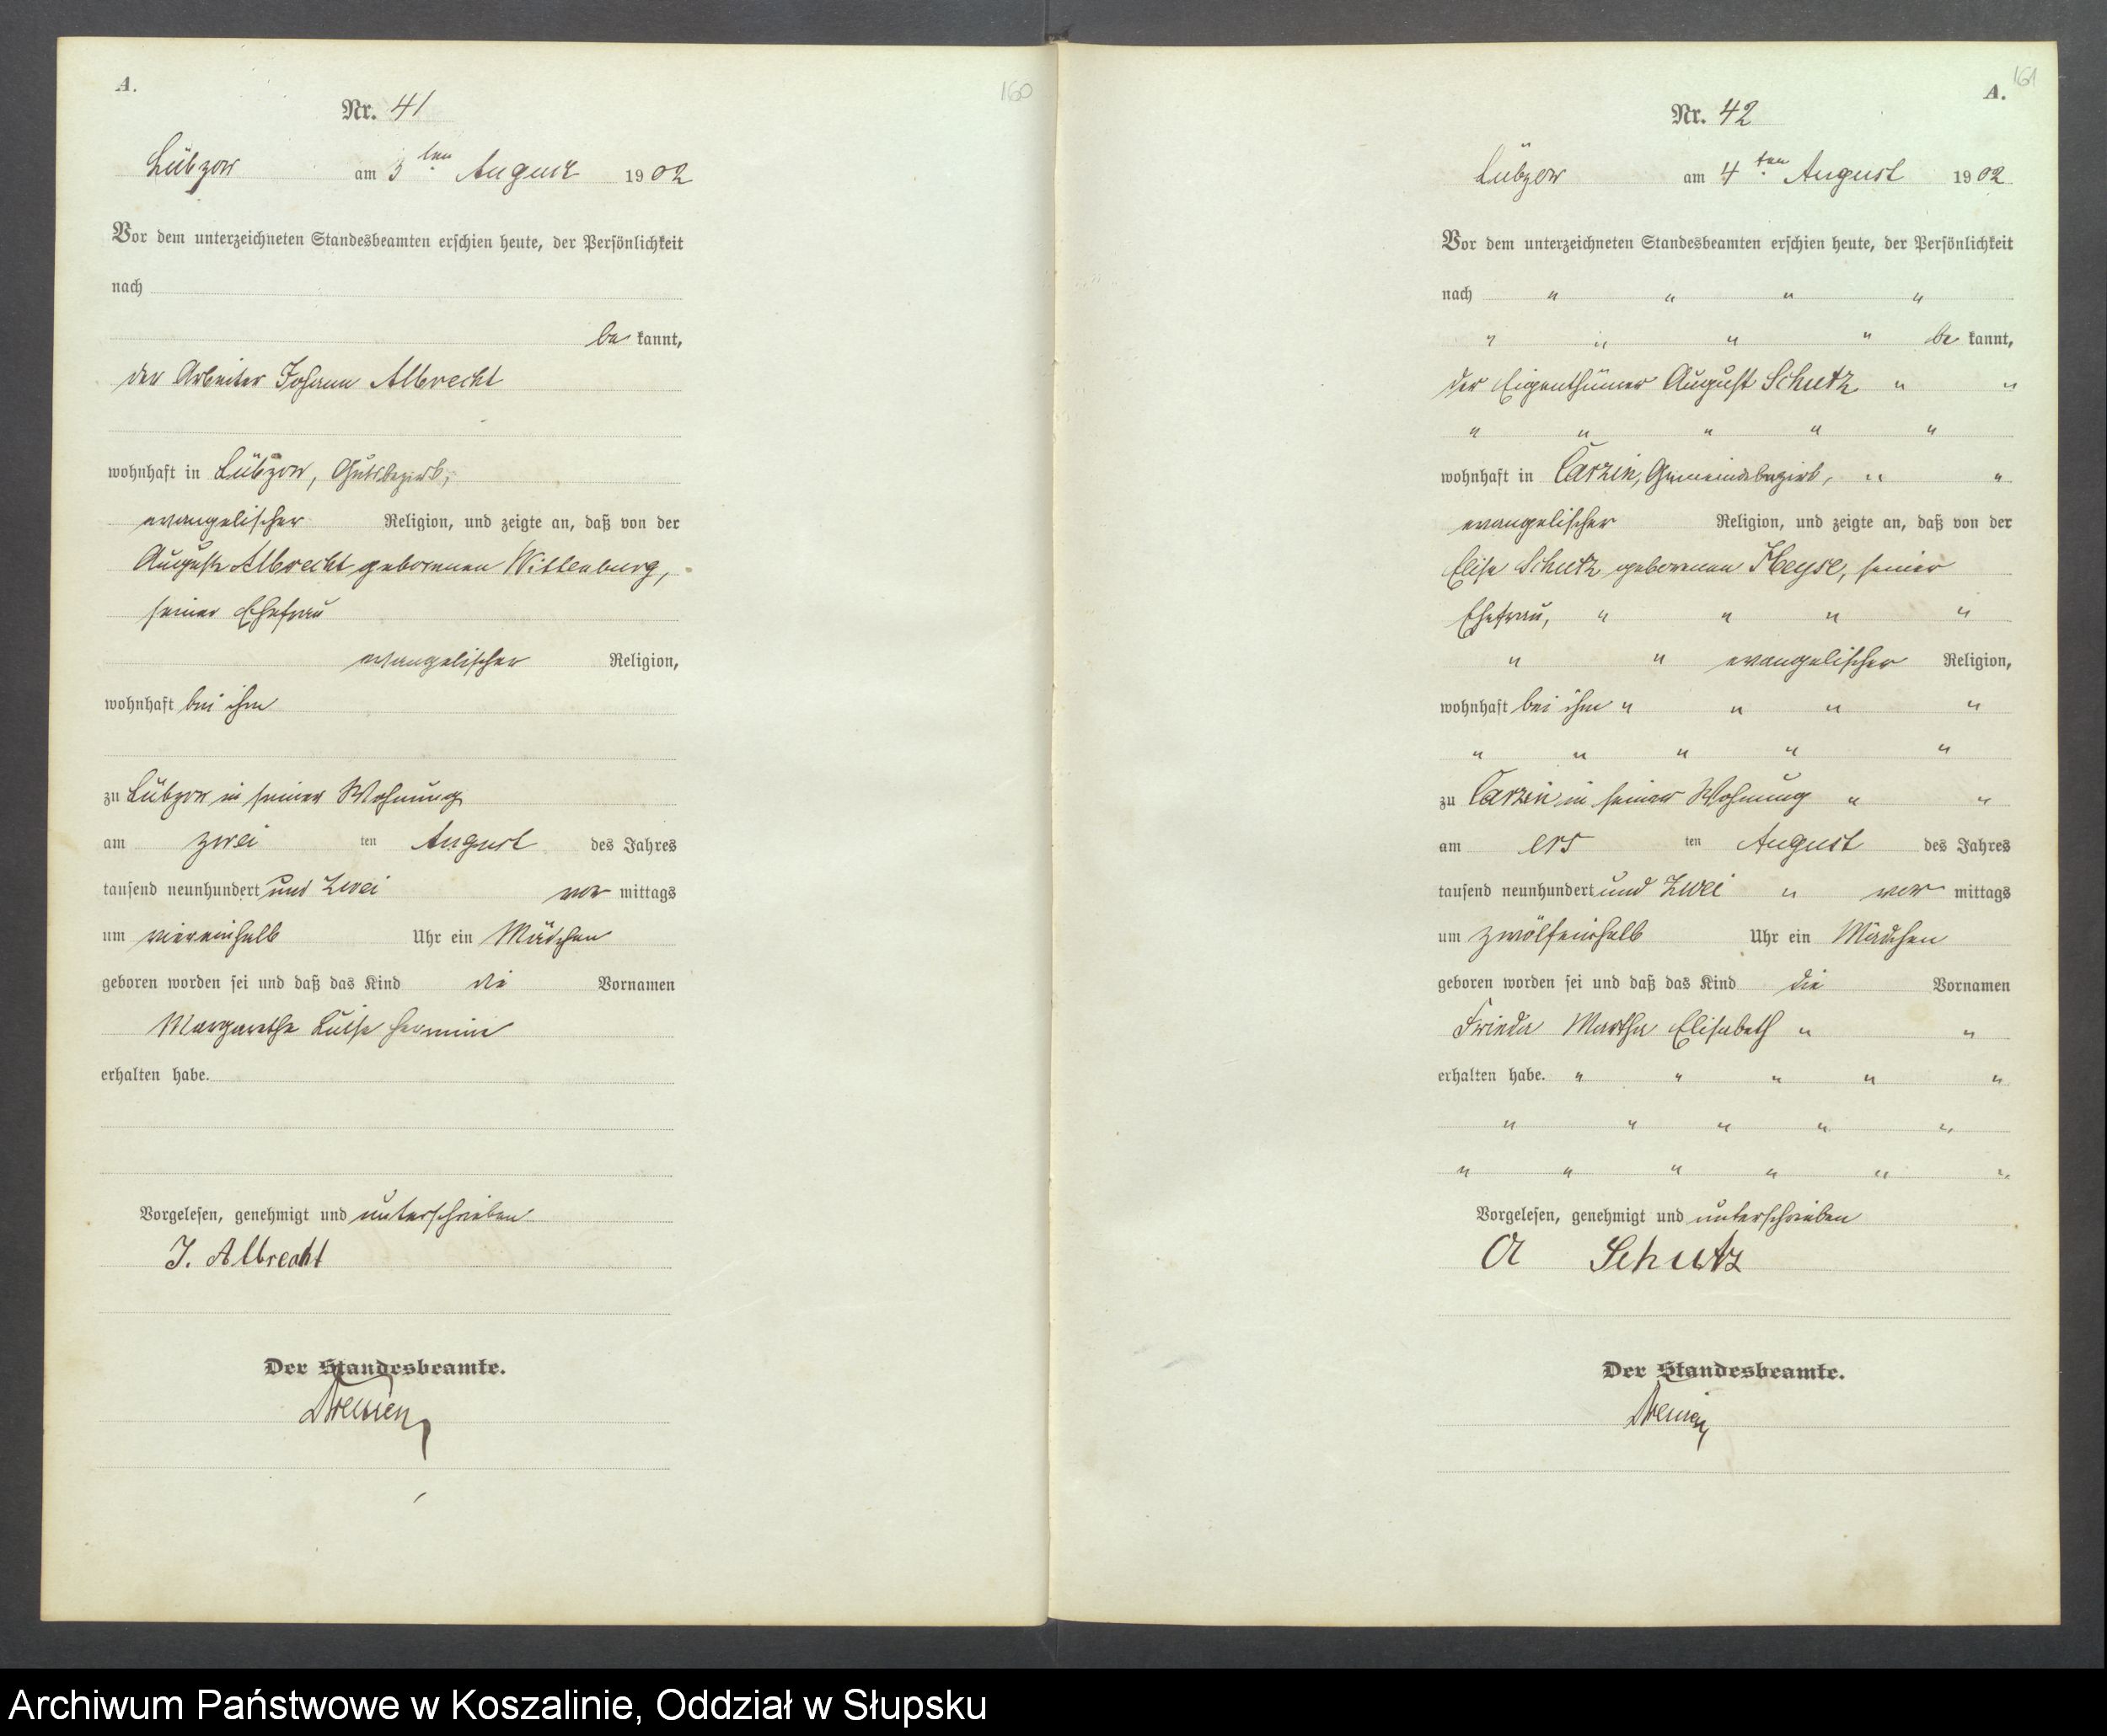 160
A.
Nr. 41
Lübzow am 3ten August 1902
Vor dem unterzeichneten Standesbeamten erschien heute, der Persönlichkeit
nach
be kannt,
der Arbeiter Johann Albrecht
wohnhaft in Lübzow, Gutsbezirk,
evangelischer Religion, und zeigte an, daß von der
Auguste Albrecht geborenen Wittenburg,
seiner Ehefrau
evangelischer Religion,
wohnhaft bei ihm
zu Lübzow in seiner Wohnung
am zwei ten August des Jahres
tausend neunhundert und zwei vor mittags
um viereinhalb Uhr ein Mädchen
geboren worden sei und daß das Kind die Vornamen
Margarethe Luise Hermine
erhalten habe.
Vorgelesen, genehmigt und unterschrieben
J. Albrecht
Der Standesbeamte.
161
A.
Nr. 42
Lübzow am 4ten August 1902
Vor dem unterzeichneten Standesbeamten erschien heute, der Persönlichkeit
nach " " " "
" " " " be kannt,
der Eigenthümer August Schutz " "
" " " " "
wohnhaft in Carzin, Gemeindebezirk, " "
evangelischer Religion, und zeigte an, daß von der
Elise Schutz geborenen Heyse, seiner
Ehefrau, " " " "
" " evangelischer Religion,
wohnhaft bei ihm " " " "
" " " " "
zu Carzin in seiner Wohnung " "
am ers ten August des Jahres
tausend neunhundert und zwei " vor mittags
um zwölfeinhalb Uhr ein Mädchen
geboren worden sei und daß das Kind die Vornamen
Frieda Martha Elisabeth " "
erhalten habe. " " " " "
" " " " "
" " " " " "
Vorgelesen, genehmigt und unterschrieben
A Schutz
Der Standesbeamte.
Archiwum Państwowe w Koszalinie, Oddział w Słupsku